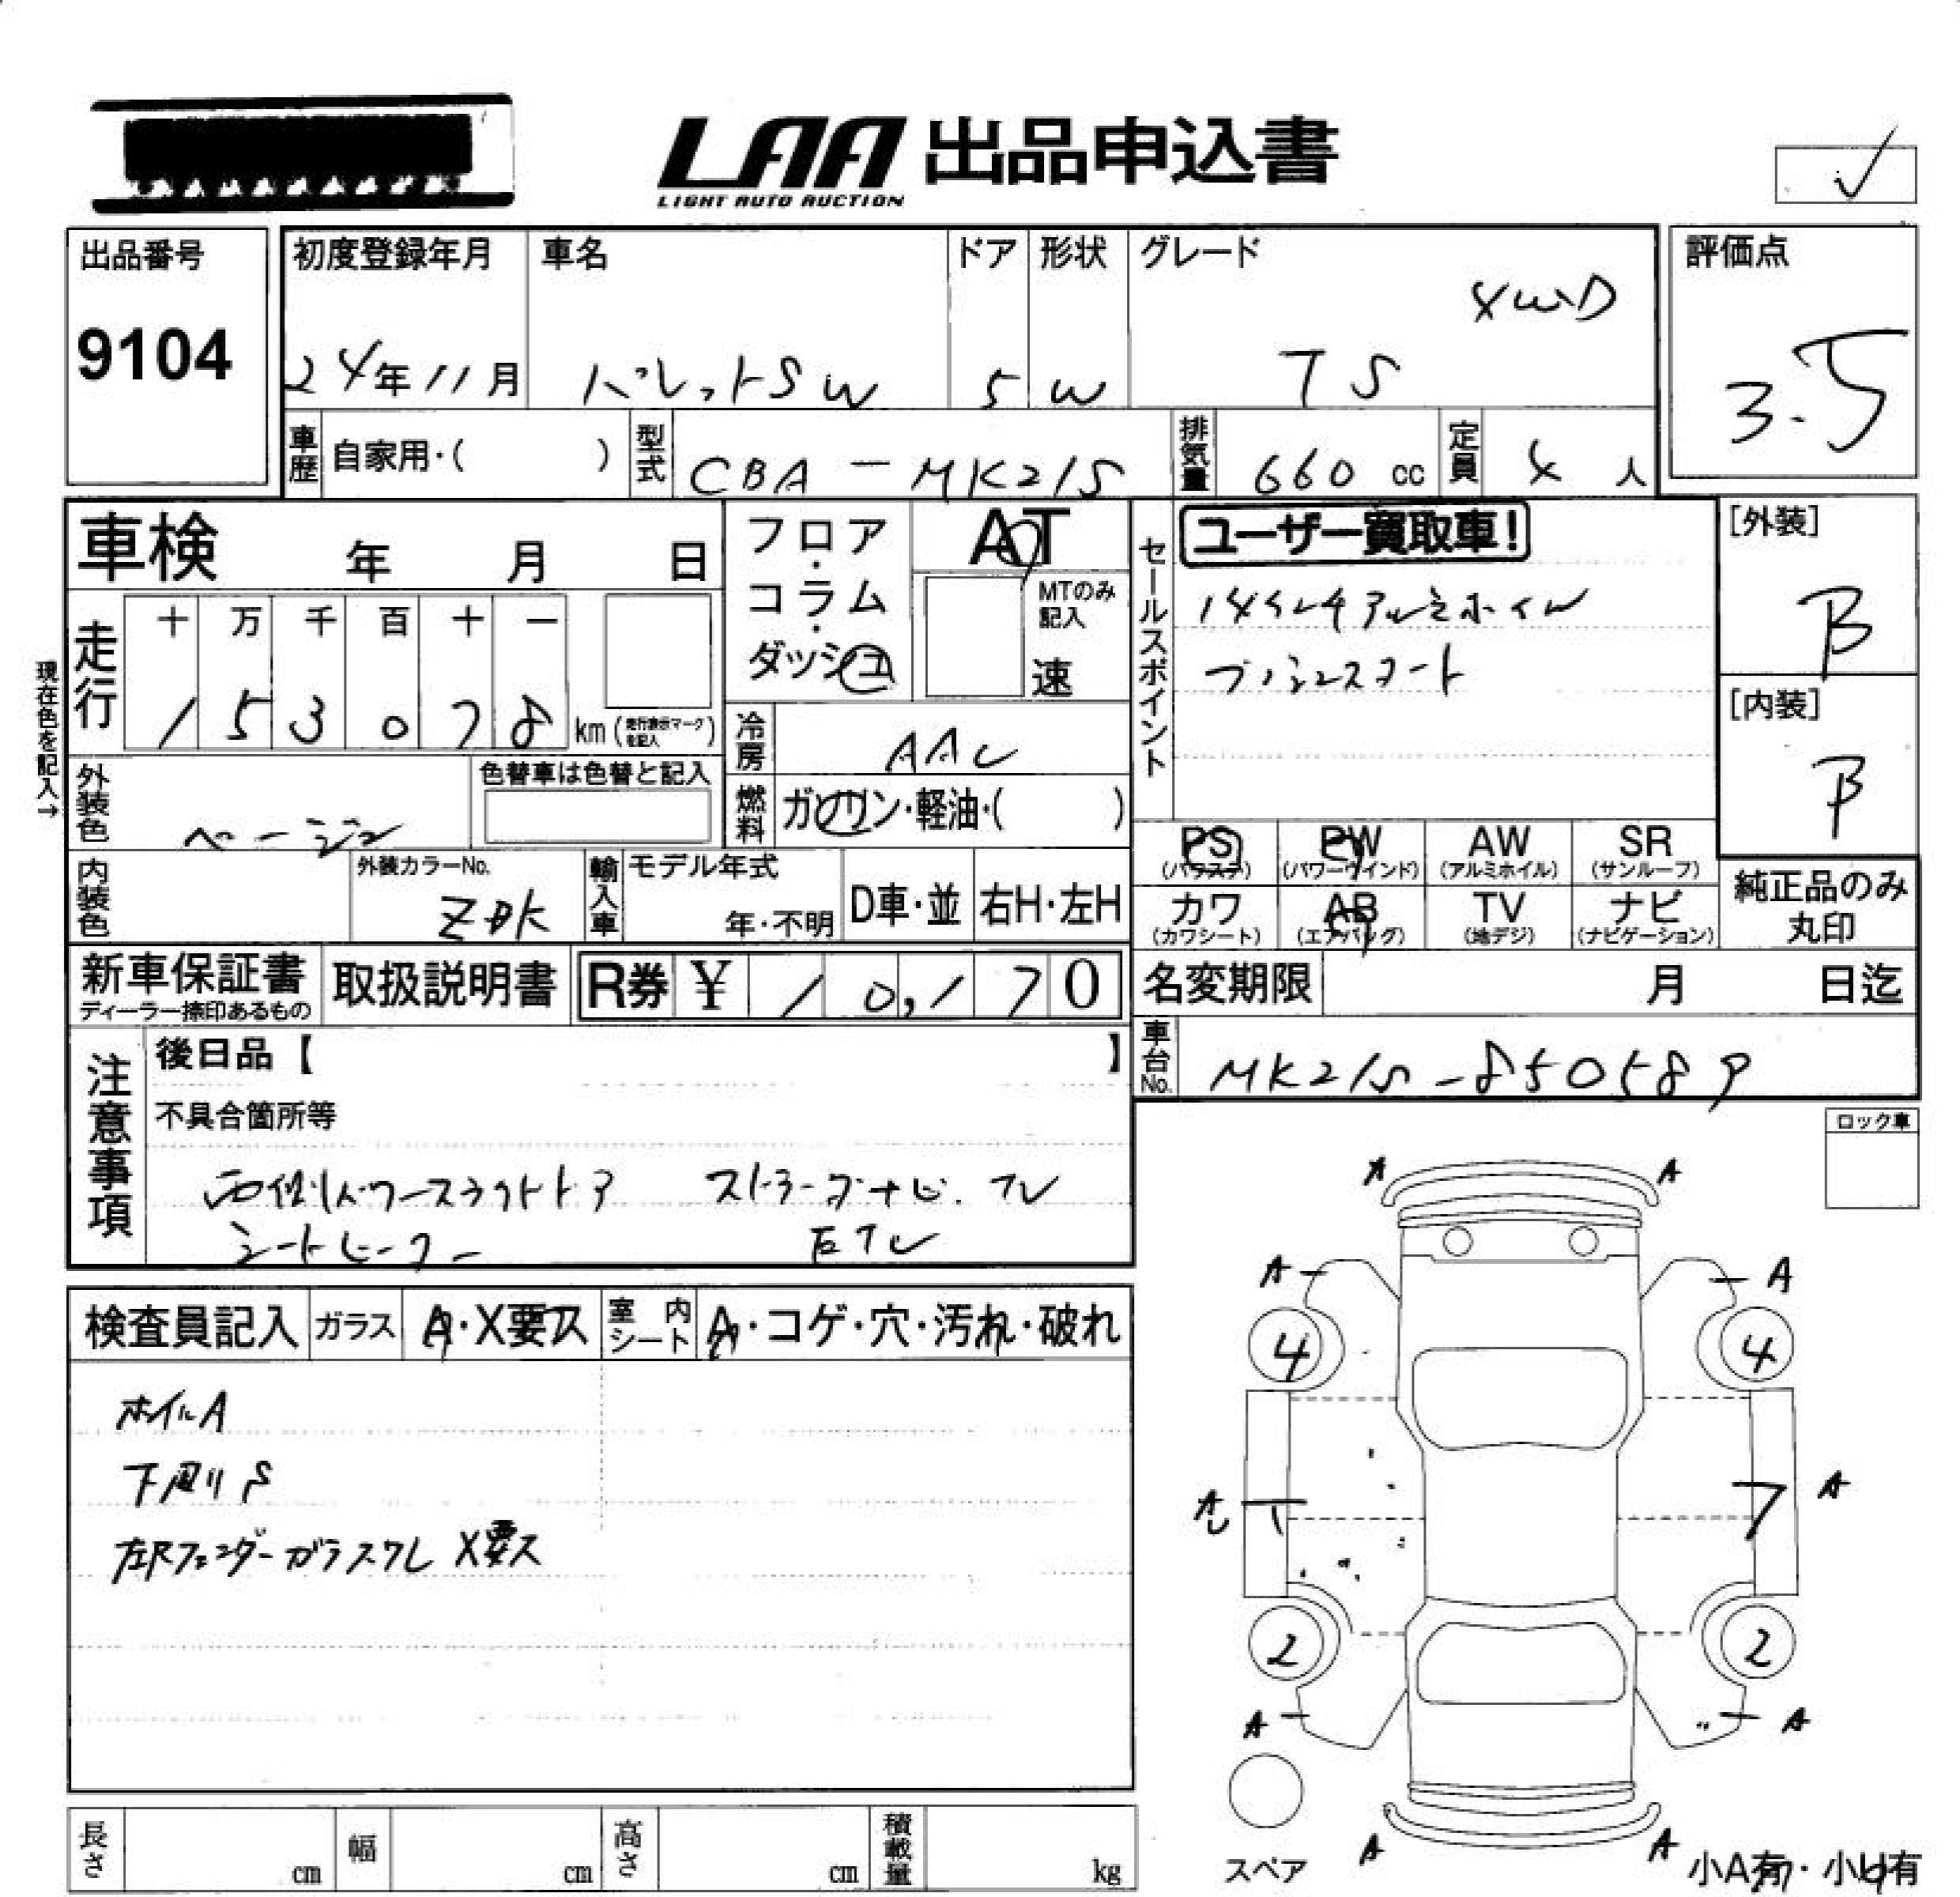 LAA 出品申込書
LIGHT AUTO AUCTION
出品番号
9104
初度登録年月 車名 ドア 形状 グレード 評価点
24年11月 パレットSW 5 W TS 4WD 3.5
車歴 自家用・( ) 型式 CBA-MK21S 排気量 660 cc 定員 4 人
車検 年 月 日
フロア・コラム・ダッシュ
AT
MTのみ記入
速
セールスポイント
ユーザー買取車!
14インチアルミホイル
プッシュスタート
[外装]
B
[内装]
B
現在色を記入→
走行 十 万 千 百 十 一
1 5 3 0 7 8 km (走行表示マークを記入)
冷房 AAC
燃料 ガソリン・軽油・( )
外装色 ベージュ 色替車は色替と記入
内装色 外装カラーNo. ZBK
輸入車 モデル年式 年・不明 D車・並 右H・左H
PS (パワステ) PW (パワーウインド) AW (アルミホイル) SR (サンルーフ)
カワ (カワシート) AB (エアバッグ) TV (地デジ) ナビ (ナビゲーション)
純正品のみ
丸印
新車保証書 取扱説明書 R券 ¥ 10,170
ディーラー捺印あるもの
名変期限 月 日迄
車台No. MK21S-850589
注意事項
後日品【 】
不具合箇所等
両側パワースライドドア ストラーダナビ. TV
シートヒーター ETC
ロック車
検査員記入 ガラス A・X要ス 室内シート A・コゲ・穴・汚れ・破れ
ホイルA
下廻りS
左Fフェンダーガラスワレ X要ス
A A
A A
4 4
A A
2 2
A A
A A
スペア
小A有・小U有
長さ cm 幅 cm 高さ cm 積載量 kg